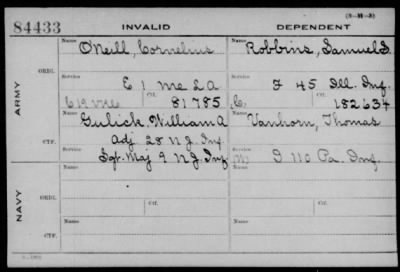 (3-38-3)
84433
INVALID DEPENDENT
ARMY
ORIG.
Name O'Neill, Cornelius Name Robbins, Samuel D.
Service E 1 Me L A Service F 45 Ill. Inf.
Ctf. 81785 C. Ctf. 182634
CTF.
Name Gulick, William A Name Vanhorn, Thomas
Service Adj 28 N J Inf. Service
Sgt. Maj 9 N J Inf W I 110 Pa. Inf.
NAVY
ORIG.
Name Name
Service Ctf. Service Ctf.
CTF.
Name Name